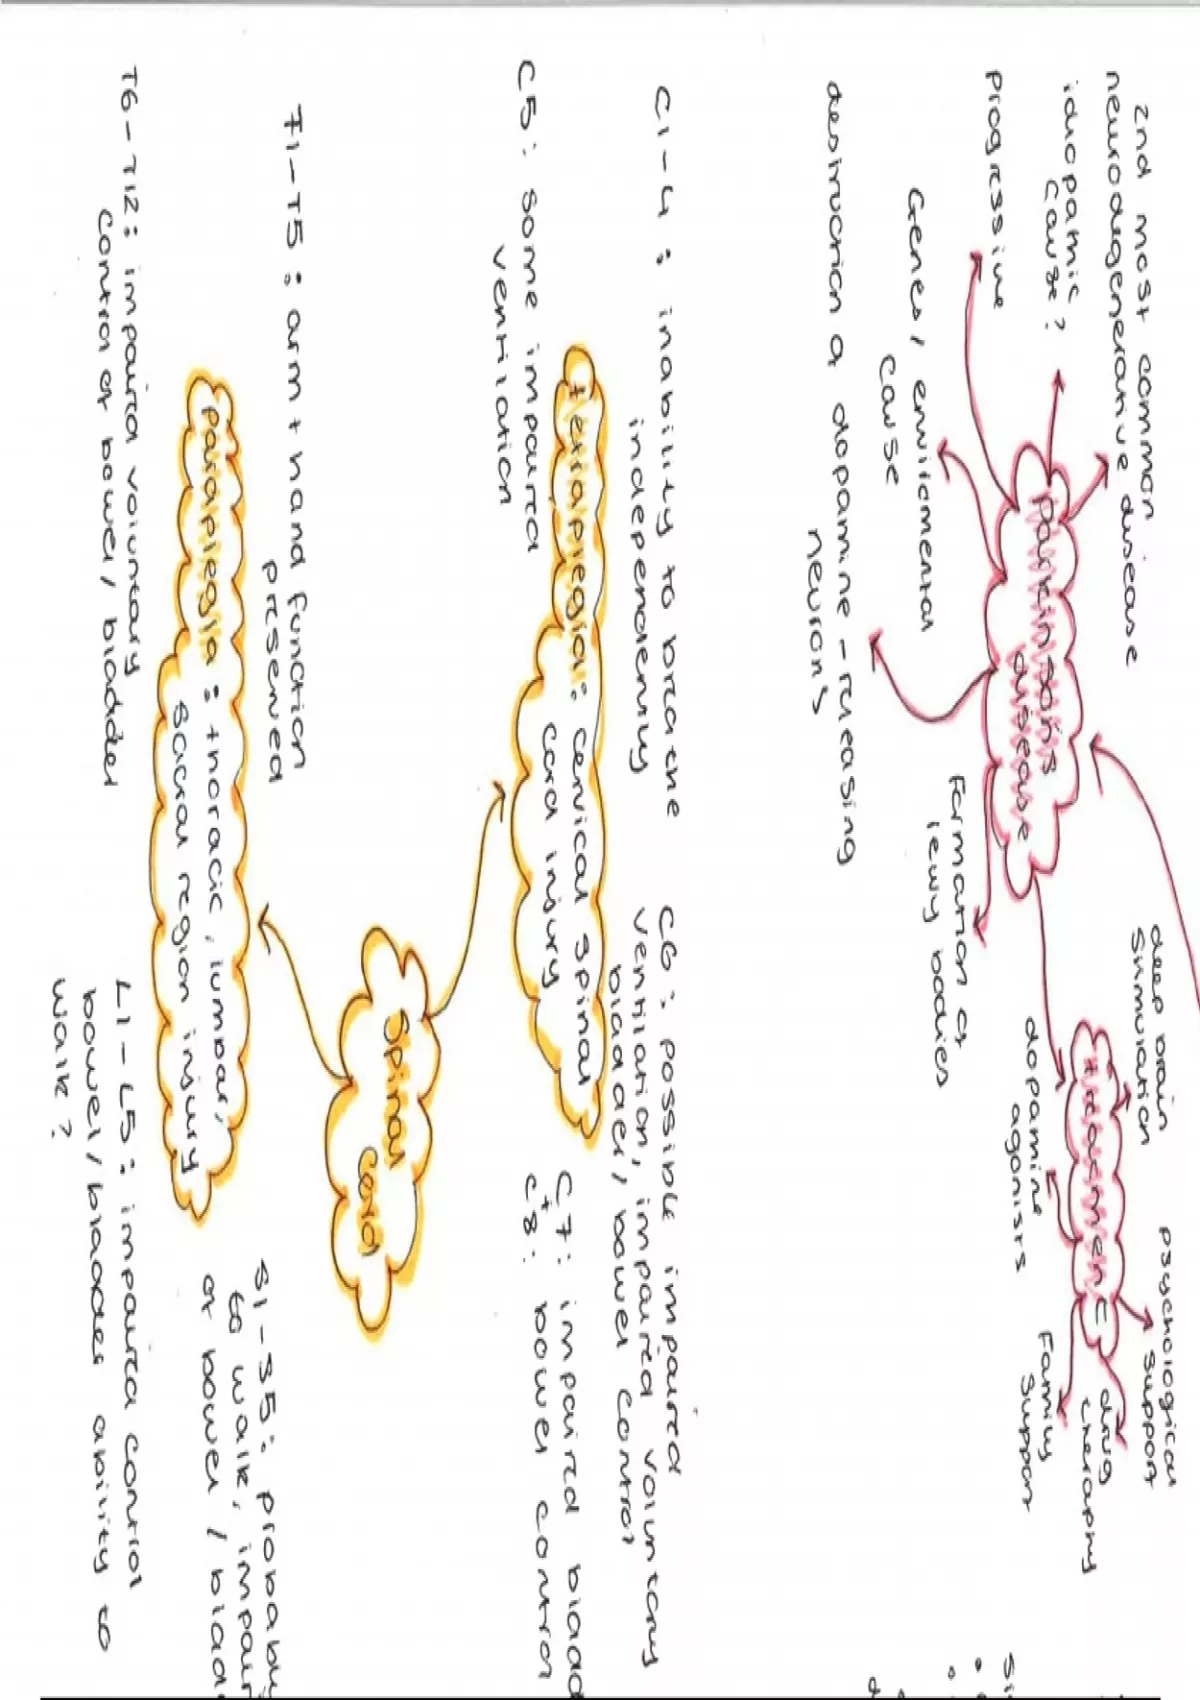 2nd most common
neurodegenerative disease
idiopathic
cause?
progressive
Genes, enviromental
cause
destruction of dopamine-releasing
neurons
Parkinsons
disease
Formation of
lewy bodies
deep brain
stimulation
treatment
dopamine
agonists
psychological
support
drug
therapy
Family
support
C1-4: inability to breathe
independently
C5: some impaired
ventilation
tetraplegia: cervical spinal
cord injury
C6: possible impaired
ventilation, impaired voluntary
bladder, bowel control
C7: impaired bladd
+
C8: bowel control
Spinal
cord
T1-T5: arm + hand function
preserved
T6-T12: impaired voluntary
control of bowel/bladder
paraplegia: thoracic, lumbar,
sacral region injury
L1-L5: impaired control
bowel/bladder ability to
walk?
S1-S5: probably
to walk, impair
of bowel/blad